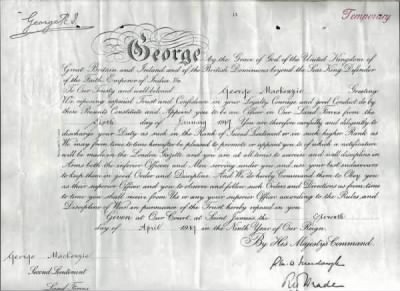 George R.I.
Temporary
George by the Grace of God of the United Kingdom of
Great Britain and Ireland and of the British Dominions beyond the Seas King, Defender
of the Faith, Emperor of India &c.
To Our Trusty and well beloved George Mackenzie Greeting
We reposing especial Trust and Confidence in your Loyalty Courage and good Conduct do by
these Presents Constitute and Appoint you to be an Officer in Our Land Forces from the
day of January You are therefore carefully and diligently to
discharge your Duty as such in the Rank of Second Lieutenant or in such higher Rank as
We may from time to time hereafter be pleased to promote or appoint you to of which a notification
will be made in the London Gazette and you are at all times to exercise and well discipline in
Arms both the inferior Officers and Men serving under you and use your best endeavours
to keep them in good Order and Discipline. And We do hereby Command them to Obey you
as their superior Officer and you to observe and follow such Orders and Directions as from time
to time you shall receive from Us or any your superior Officer according to the Rules and
Discipline of War in pursuance of the Trust hereby reposed in you
Given at Our Court, at Saint James's the
day of April in the Ninth Year of Our Reign
By His Majesty's Command.
George Mackenzie
Second Lieutenant
Land Forces